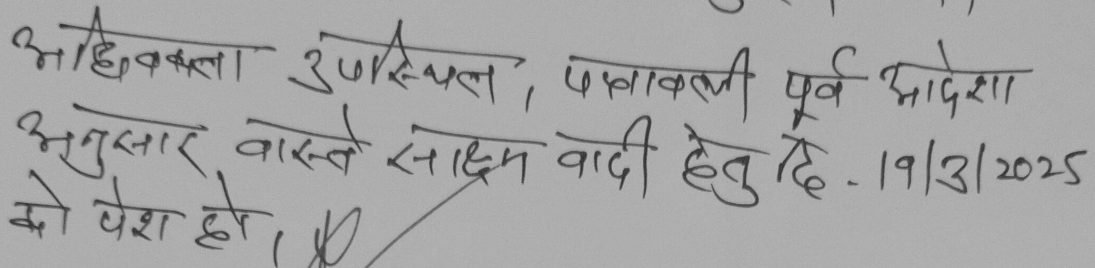 अधिवक्ता उपस्थित, पत्रावली पूर्व आदेश
अनुसार वास्ते साक्ष्य वादी हेतु दि. 19/3/2025
को पेश हो,